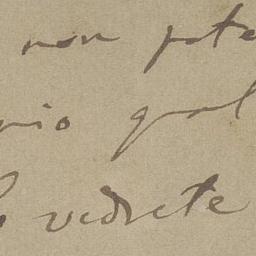 non pote
nio qual
lo vedrete